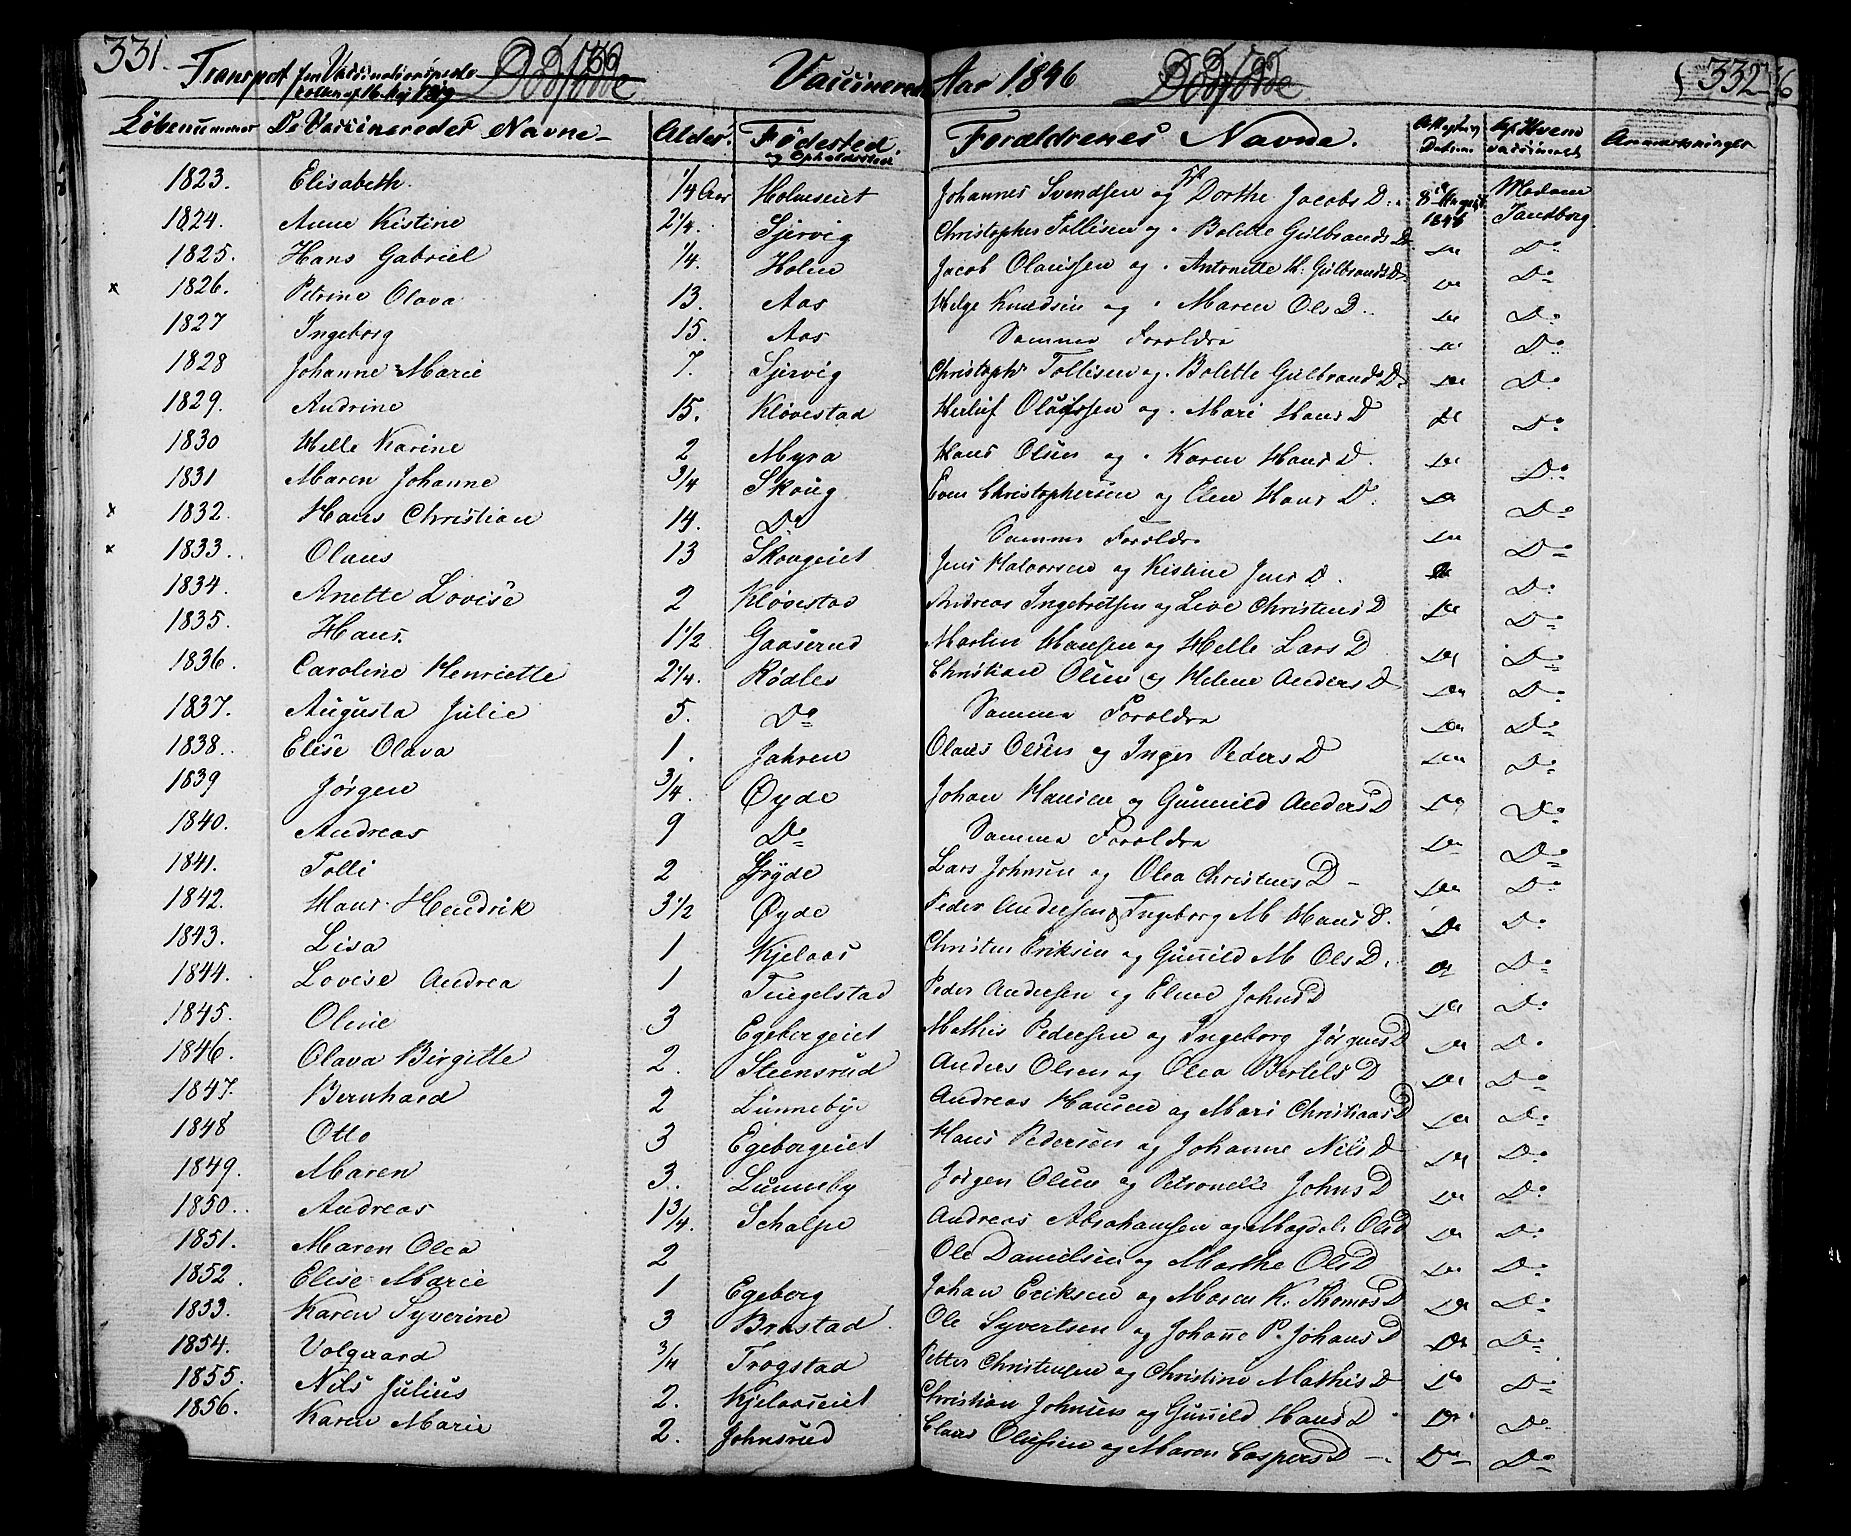 331. Transport Vaccinerede Aar 1846 332
Løbenummer De Vaccineredes Navne Alder. Fødested og Opholdssted Foræld​renes Navne. Attestens Datum Af Hvem vaccineret Anmærkninger
1823. Elisabeth. 1/4 Aar Holmseiet Johannes Svendsen og Dorthe Jacobs D. 8 August 1846 Madame Sandborg
1824. Anne Kistine 2 1/4. Sjervig Christopher Tollisen og Bolette Gulbrands D. Do Do
1825. Hans Gabriel 1/4. Holm Jacob Olaussen og Antonette M. Gulbrands D. Do Do
x 1826. Petrine Olava 13. Aas Helge Knudsen og Maren Ols D. Do Do
1827 Ingeborg 15. Aas Samme Foroldre Do Do
1828 Johanne Marie 7. Sjervig Christoph Tollisen og Bolette Gulbrands D. Do Do
1829. Andrine 15. Kløvestad Herluf Olafssen og Mari Hans D Do Do
1830 Helle Karine 2 Myra Hans Olsen og Karen Hans D. Do Do
1831 Maren Johanne 3/4 Skoug Even Christophersen og Elen Hans D. Do Do
x 1832. Hans Christian 14. Do Samme Foroldre Do Do
x 1833. Olaus 13 Skougeiet Jens Halvorsen og Kistine Jens D. Do Do
1834. Anette Lovise 2 Kløvestad Andreas Ingebretsen og Live Christens D Do Do
1835. Hans. 1 1/2 Gaaserud Martin Hansen og Helle Lars D Do Do
1836. Caroline Henriette 2 1/4. Rødles Christian Olsen og Helene Anders D Do Do
1837. Augusta Julie 5. Do Samme Foroldre Do Do
1838. Elise Olava 1. Jahren Olaus Olsen og Inger Peders D Do Do
1839 Jørgen 3/4. Øyde Johan Hansen og Gunnild Anders D Do Do
1840. Andreas 9 Do Samme Foroldre Do Do
1841. Tolli 2 Øyde Lars Johnsen og Olea Christens D Do Do
1842. Hans Hendrik 3 1/2 Øyde Peder Andersen & Ingeborg M Hans D. Do Do
1843. Lisa 1 Kjelaas Christen Eriksen og Gunild M Ols D. Do Do
1844. Lovise Andrea 1 Tingelstad Peder Andersen og Eline Johns D Do Do
1845. Oline 3 Egebergeiet Mathis Pedersen og Ingeborg Jørgens D Do Do
1846. Olava Birgitte 2. Steensrud Anders Olsen og Olea Bertels D Do Do
1847. Bernhard 2 Lunnebye Andreas Hansen og Mari Christians D Do Do
1848 Otto 3 Egebergeiet Hans Pedersen og Johanne Nils D Do Do
1849. Maren 3. Lunneby Jørgen Olsen og Petronelle Johns D Do Do
1850. Andreas 1 3/4. Schalpe Andreas Abrahamsen og Magdel. Ols D Do Do
1851. Maren Olea 2 Ole Danielsen og Marthe Ols D Do Do
1852. Elise Marie 1 Egeberg Johan Eriksen og Maren K. Thomas D Do Do
1853. Karen Syverine 3 Brastad Ole Syvertsen og Johanne P. Johans D Do Do
1854. Volgaard 3/4 Trogstad Petter Christensen og Christine Mathis D Do Do
1855. Nils Julius 2. Kjelaaseiet Christian Johnsen og Gunild Hans D Do Do
1856. Karen Marie 2. Johnsrud Claus Olufsen og Maren Caspers D Do Do